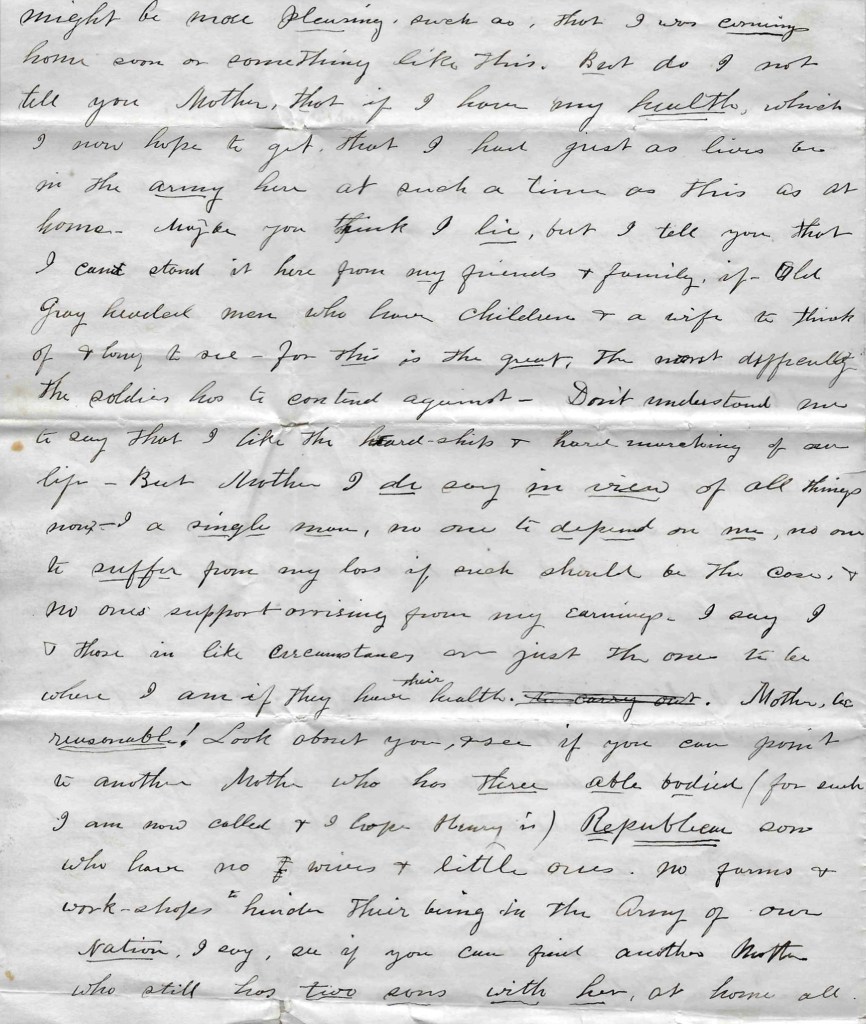 might be more pleasing, such as, that I was coming
home soon or something like this. But do I not
tell you Mother, that if I have my health, which
I now hope to get, that I had just as lives be
in the army here at such a time as this as at
home – Maybe you think I lie, but I tell you that
I can stand it here from my friends & family, if Old
Gray headed men who have children & a wife to think
of & long to see – for this is the great, the most difficulty
the soldier has to contend against – Don't understand me
to say that I like the hard-ships & hard marching of our
life – But Mother I do say in view of all things
now – I a single man, no one to depend on me, no one
to suffer from my loss if such should be the case, &
no ones support arrising from my earnings – I say I
& those in like circumstances are just the ones to be
where I am if they have their health. to carry out. Mother, be
reasonable! Look about you, & see if you can point
to another Mother who has three able bodied (for such
I am now called & I hope Henry is) Republican sons
who have no wives & little ones. no farms &
work-shops to hinder their being in the Army of our
Nation, I say, see if you can find another Mother
who still has two sons with her, at home all